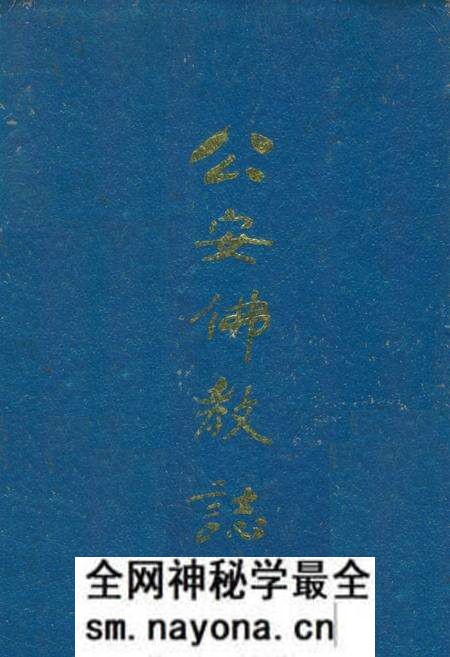 公安佛教誌
全网神秘学最全
sm.nayona.cn